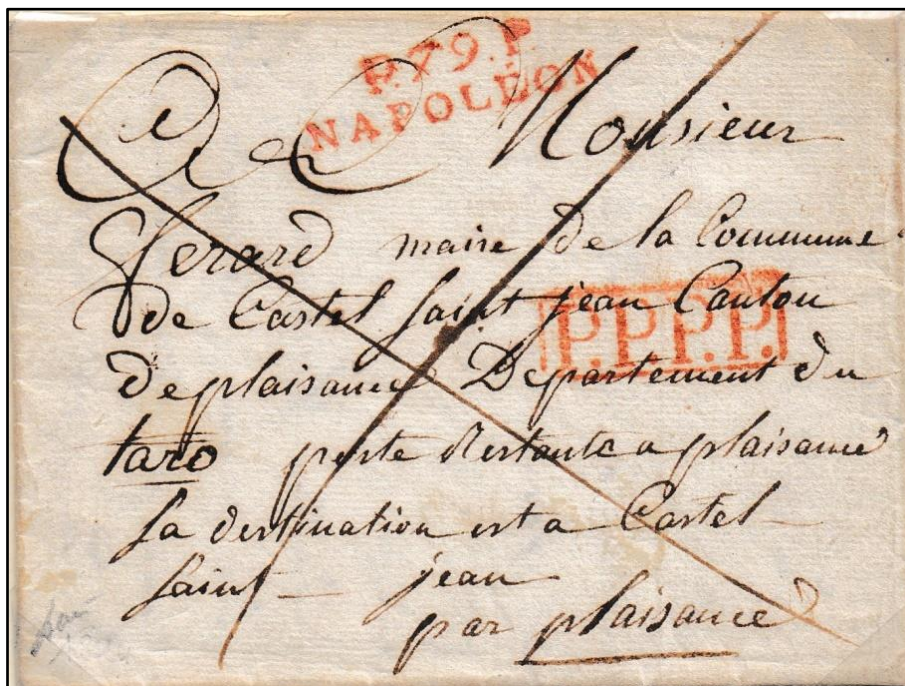 P.79.P.
NAPOLÉON
A Monsieur
Gerard maire de la Commune
de Castel Saint jean Canton
P.P.P.P.
de plaisance Departement du
taro poste Restante a plaisance
Sa destination est a Castel
Saint jean
par plaisance